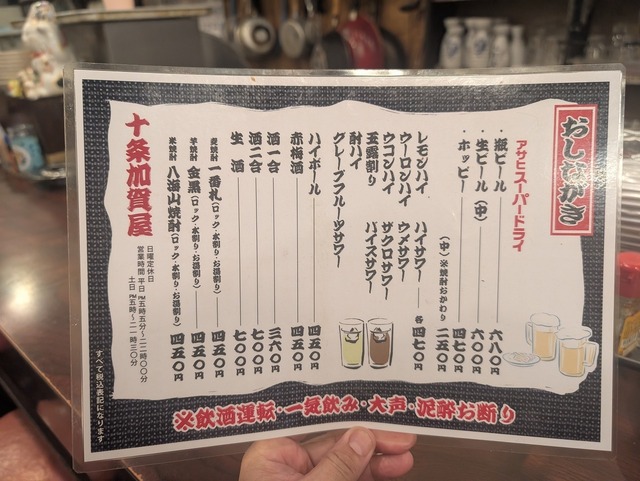 おしながき
アサヒスーパードライ
・瓶ビール 六八〇円
・生ビール(中) 六〇〇円
・ホッピー 四七〇円
(中)※焼酎おかわり 二五〇円
レモンハイ ハイサワー 各四七〇円
ウーロンハイ ウメサワー
ウコンハイ ザクロサワー
玉露割り バイスサワー
酎ハイ
グレープフルーツサワー
ハイボール 四五〇円
赤梅酒 四五〇円
酒一合 三六〇円
酒二合 七〇〇円
生酒 七〇〇円
麦焼酎 一番札(ロック・水割り・お湯割り) 四五〇円
芋焼酎 金黒(ロック・水割り・お湯割り) 四五〇円
米焼酎 八海山焼酎(ロック・水割り・お湯割り) 四五〇円
十条加賀屋
日曜定休日
営業時間 平日 PM五時五分〜二二時〇〇分
土日 PM五時〜二一時三〇分
すべて税込表記になります
※飲酒運転・一気飲み・大声・泥酔お断り